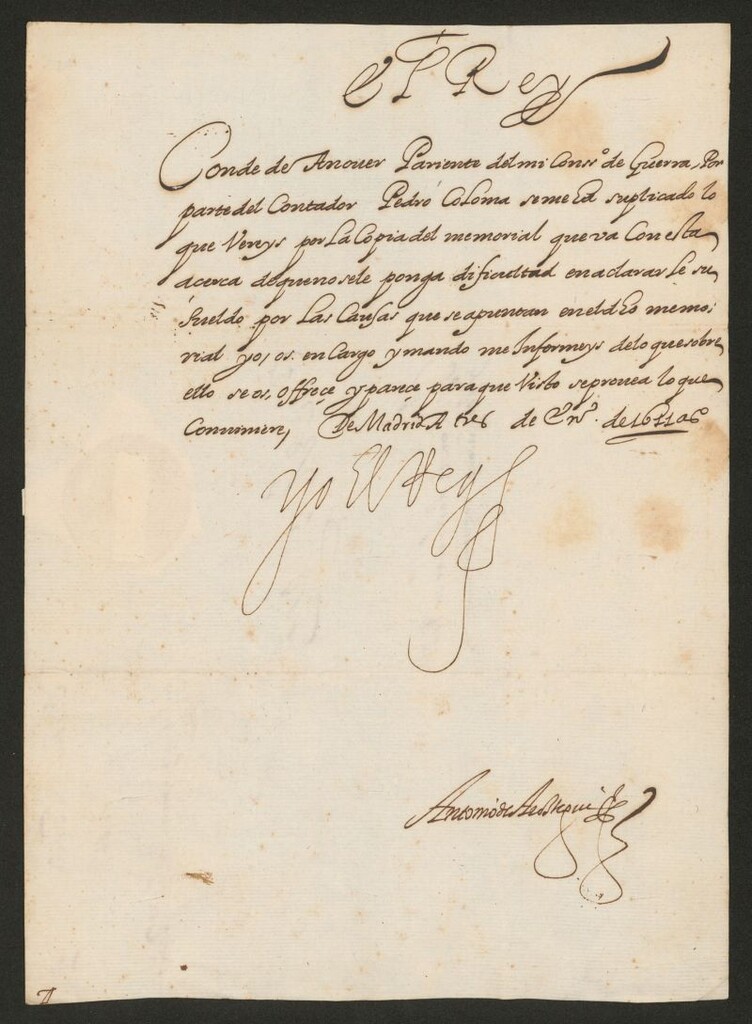 El Rey
Conde de Anouer Pariente del mi Conss.º de Guerra, Por
parte del Contador Pedro Coloma se me ha suplicado lo
que Vereys por La Copia del memorial que va Con esta
acerca de que no se le ponga dificultad en aclararle su
sueldo por Las Causas que se apuntan en el dho memo,
rial yo, os. encargo y mando me Informeys de lo que sobre
ello se os, offrece y parece para que Visto se prouea lo que
Conuiniere, De Madrid A tres de En.º de 1611 as
yo El Rey
Antonio de Arostegui